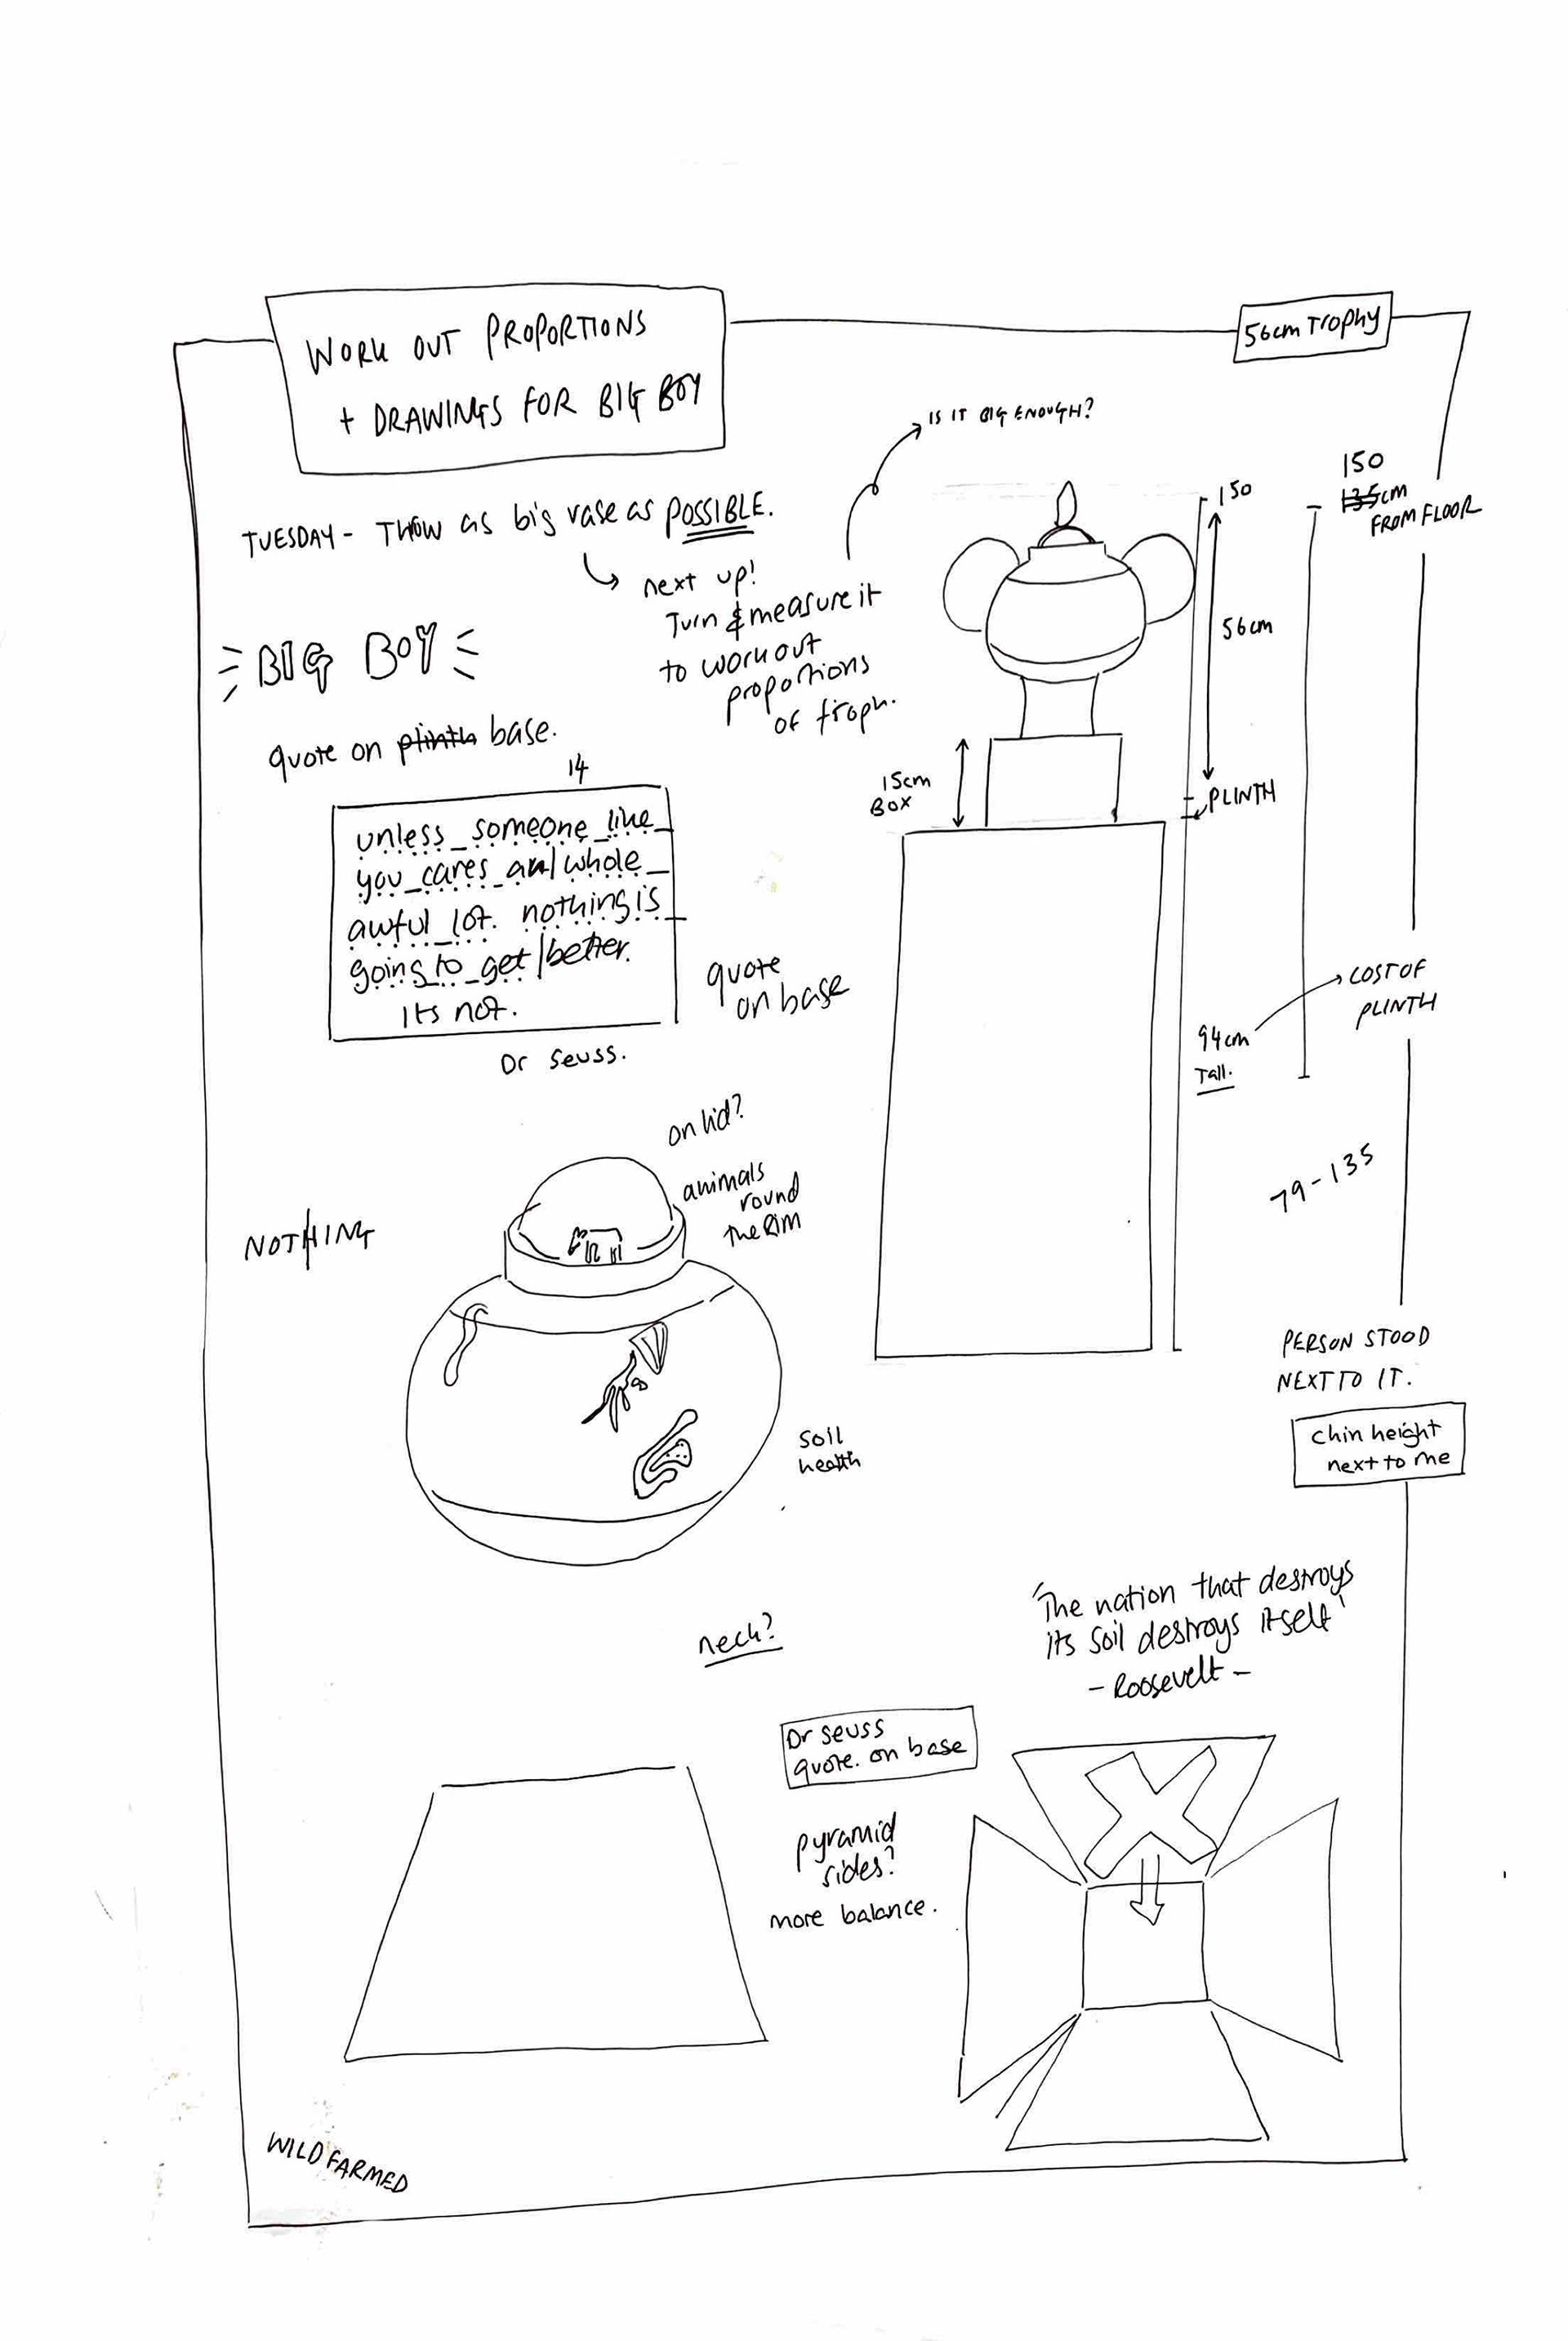 WORK OUT PROPORTIONS
+ DRAWINGS FOR BIG BOY
56cm Trophy
IS IT BIG ENOUGH?
TUESDAY - THOW as big vase as POSSIBLE.
next up!
Turn & measure it
to work out
proportions
of troph.
BIG BOY
quote on plinth base.
14
unless someone like
you cares an whole
awful lot. nothing is
going to get better.
its not.
Dr Seuss.
quote
on base
150
56cm
PLINTH
15cm
BOX
150
135cm
FROM FLOOR
COST OF
PLINTH
94cm
Tall.
79-135
PERSON STOOD
NEXT TO IT.
Chin height
next to me
on lid?
animals
round
the Rim
NOTHING
soil
health
neck?
'The nation that destroys
its soil destroys itself'
- Roosevelt -
Dr seuss
quote. on base
pyramid
sides?
more balance.
WILDFARMED